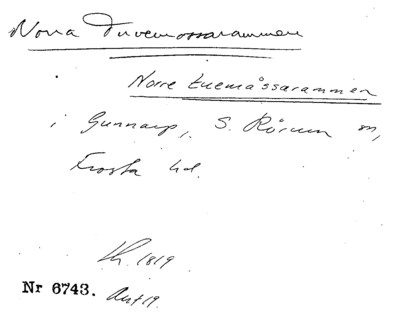 Norra Tuvemossarammen
Norre tuemåssarammen
i Gunnarp, S. Rörum sn,
Frosta hd.
Lh. 1819
Nr 6743. Akt 19.